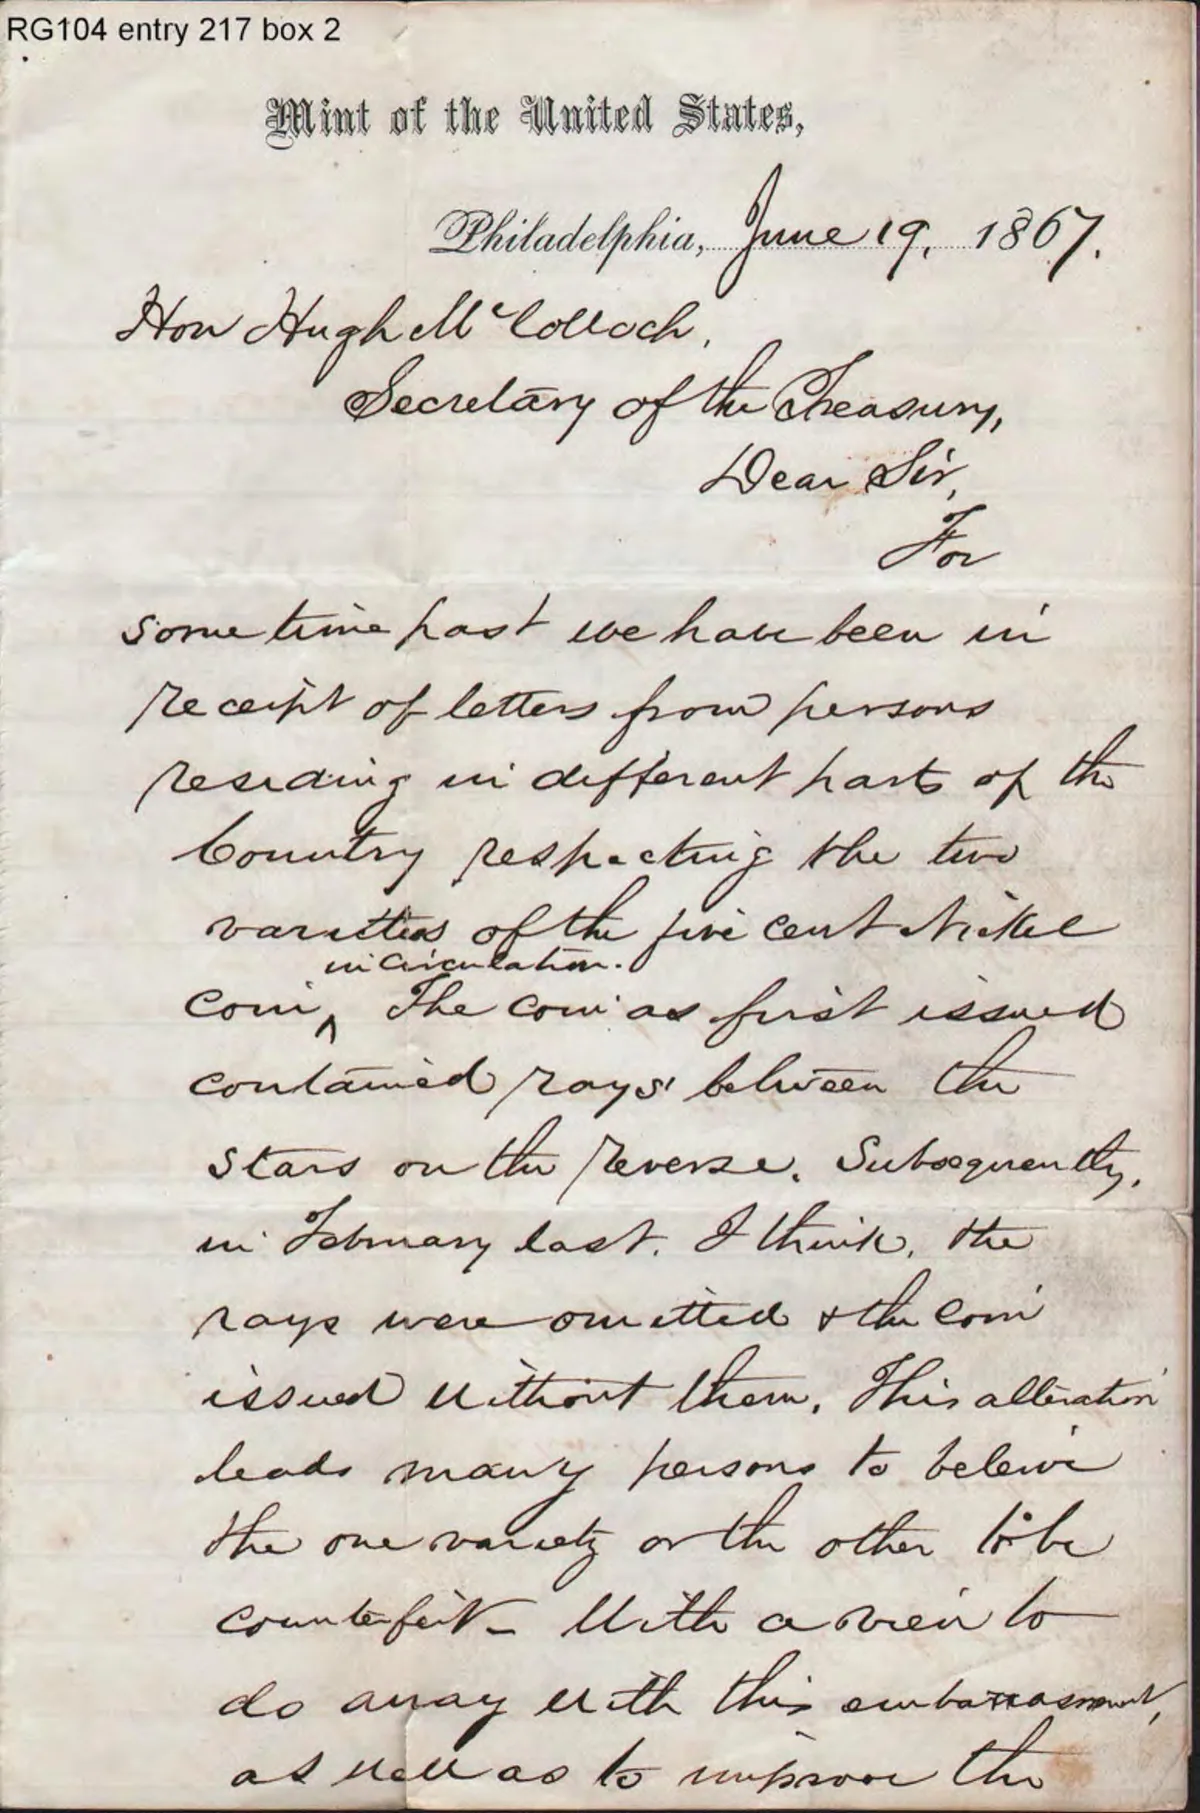 RG104 entry 217 box 2
Mint of the United States,
Philadelphia, June 19, 1867.
Hon Hugh McColloch,
Secretary of the Treasury,
Dear Sir,
For
some time past we have been in
receipt of letters from persons
residing in different parts of the
Country respecting the two
varieties of the five cent Nickel
in circulation.
coin, The coin as first issued
contained rays between the
stars on the reverse. Subsequently,
in February last, I think, the
rays were omitted & the coin
issued without them. This alteration
leads many persons to beleive
the one variety or the other to be
counterfeit – With a view to
do away with this embarrassment,
as well as to improve the